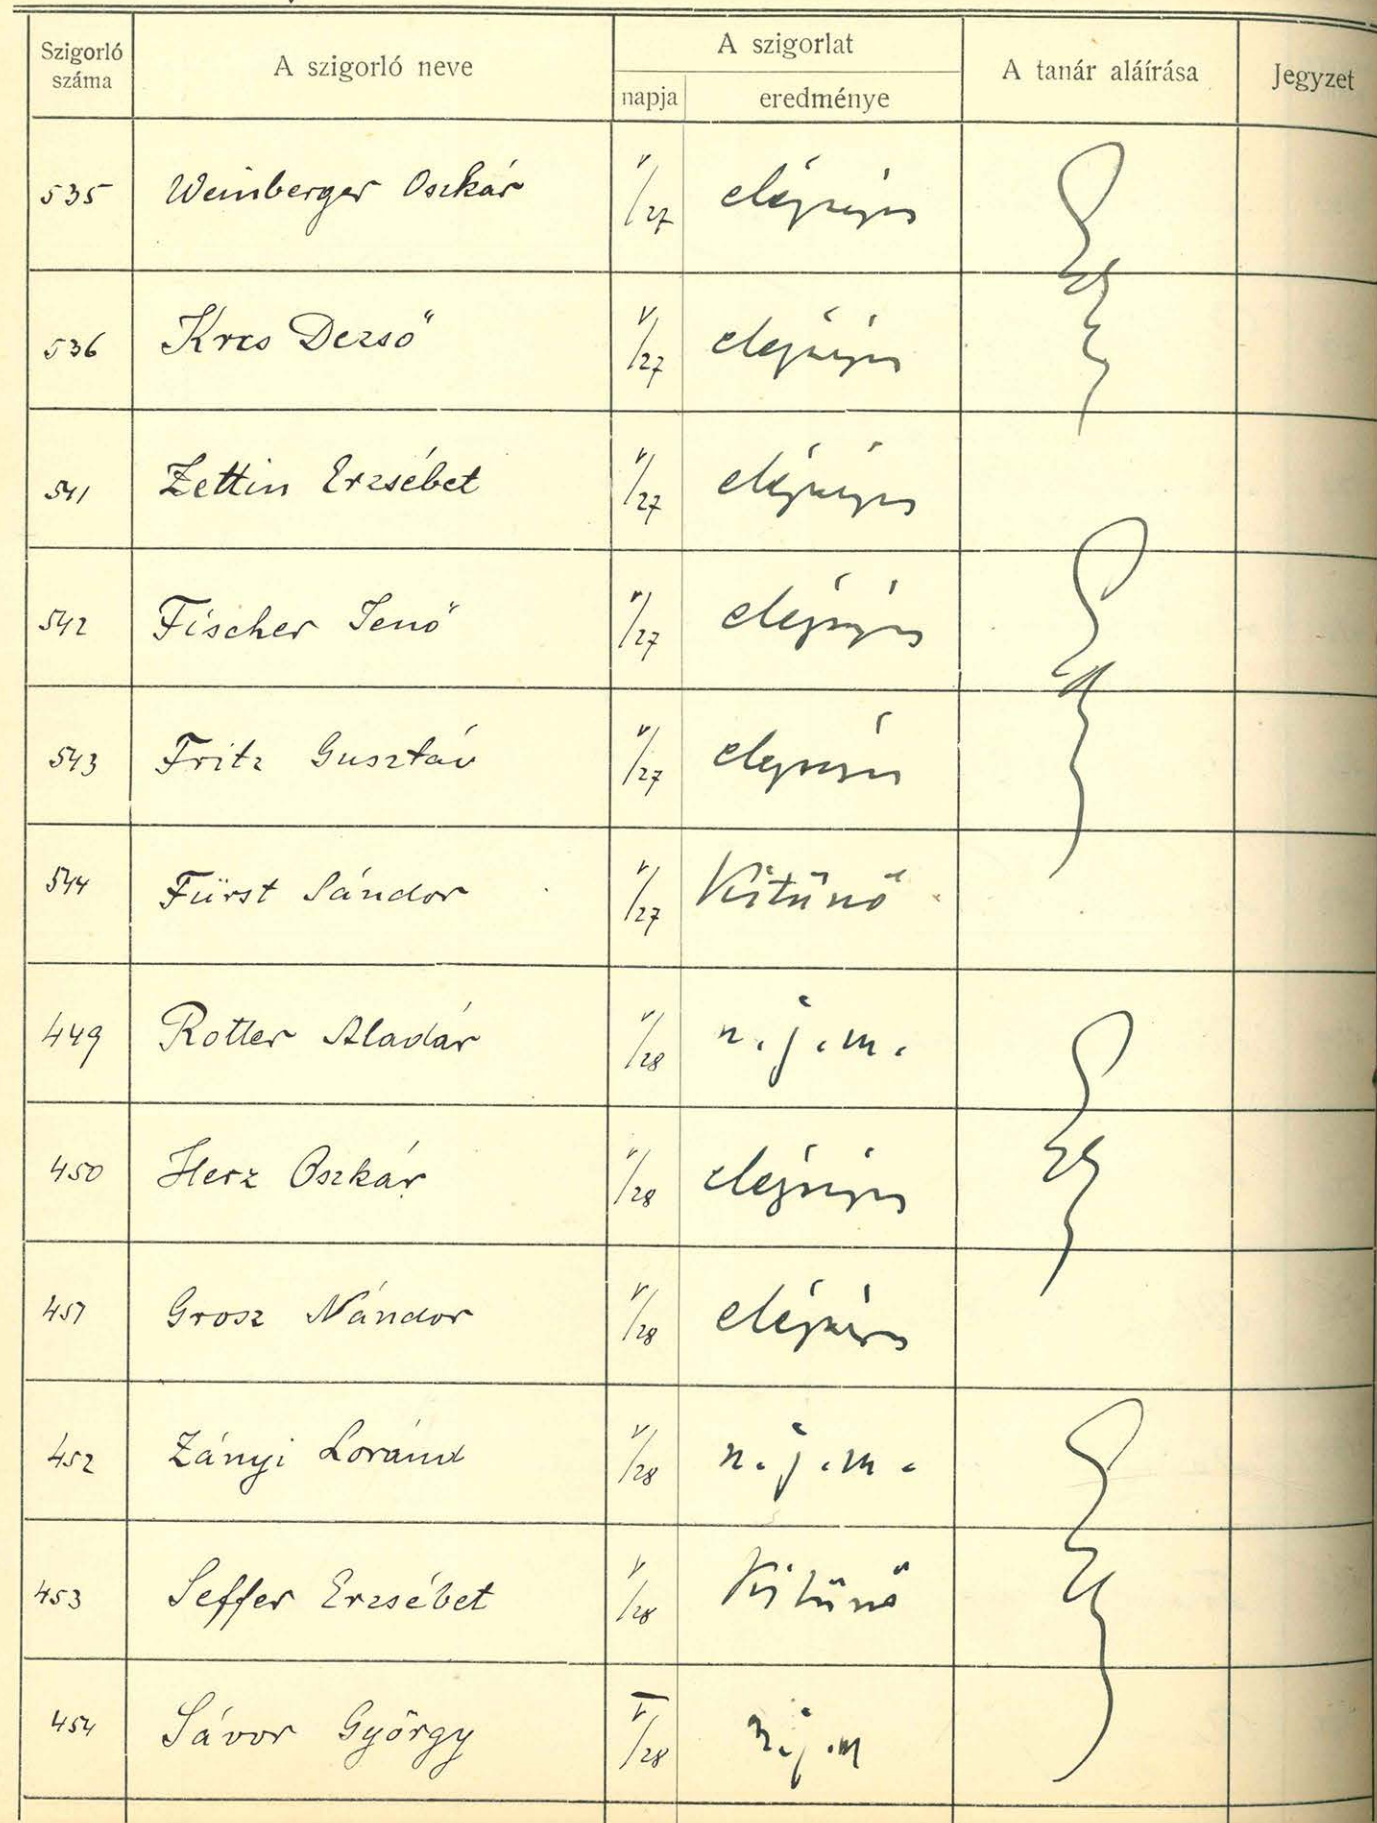 Szigorló száma
A szigorló neve
A szigorlat
napja
eredménye
A tanár aláírása
Jegyzet
535 Weinberger Oszkár V/27 elégséges
536 Kres Dezső V/27 elégséges
541 Zettin Erzsébet V/27 elégséges
542 Fischer Jenő V/27 elégséges
543 Fritz Gusztáv V/27 elégséges
544 Fürst Sándor V/27 Kitünő
449 Rotter Aladár V/28 n.j.m.
450 Herz Oszkár V/28 elégséges
451 Grosz Nándor V/28 elégséges
452 Zányi Loránd V/28 n.j.m.
453 Seffer Erzsébet V/28 Kitünő
454 Sávor György V/28 n.j.m